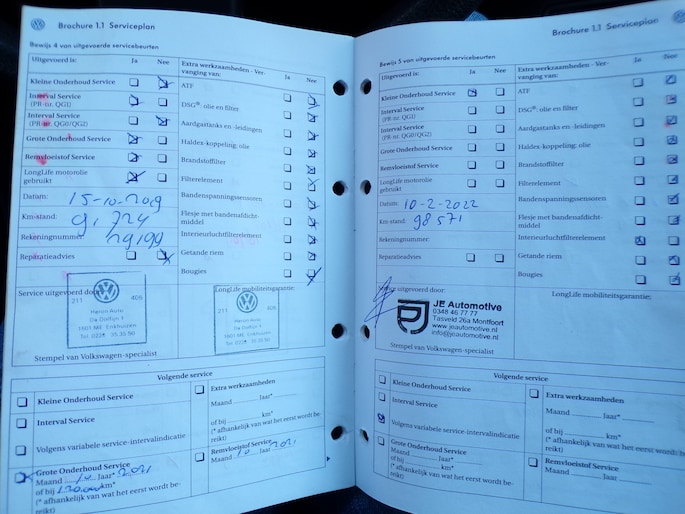 Brochure 1.1 Serviceplan
Bewijs 4 van uitgevoerde servicebeurten
Uitgevoerd is: Ja Nee
Kleine Onderhoud Service
Interval Service
(PR-nr. QG1)
Interval Service
(PR-nr. QG0/QG2)
Grote Onderhoud Service
Remvloeistof Service
LongLife motorolie
gebruikt
Datum: 15-10-2019
Km-stand: 91.724
Rekeningnummer: 29199
Reparatieadvies
Extra werkzaamheden - Ver-
vanging van: Ja Nee
ATF
DSG®: olie en filter
Aardgastanks en -leidingen
Haldex-koppeling; olie
Brandstoffilter
Filterelement
Bandenspanningssensoren
Flesje met bandenafdicht-
middel
Interieurluchtfilterelement
Getande riem
Bougies
Service uitgevoerd door:
211 406
Heron Auto
De Dolfijn 1
1601 ME Enkhuizen
Stempel van Volkswagen-specialist
LongLife mobiliteitsgarantie:
211 406
Heron Auto
De Dolfijn 1
1601 ME Enkhuizen
Volgende service
Kleine Onderhoud Service
Interval Service
Volgens variabele service-intervalindicatie
Grote Onderhoud Service
Maand 10 Jaar* 2021
of bij km*
(* afhankelijk van wat het eerst wordt be-
reikt)
Extra werkzaamheden
Maand Jaar*
of bij km*
(* afhankelijk van wat het eerst wordt be-
reikt)
Remvloeistof Service
Maand 10 Jaar 2021
Brochure 1.1 Serviceplan
Bewijs 5 van uitgevoerde servicebeurten
Uitgevoerd is: Ja Nee
Kleine Onderhoud Service
Interval Service
(PR-nr. QG1)
Interval Service
(PR-nr. QG0/QG2)
Grote Onderhoud Service
Remvloeistof Service
LongLife motorolie
gebruikt
Datum: 10-2-2022
Km-stand: 98571
Rekeningnummer:
Reparatieadvies
Extra werkzaamheden - Ver-
vanging van: Ja Nee
ATF
DSG®: olie en filter
Aardgastanks en -leidingen
Haldex-koppeling; olie
Brandstoffilter
Filterelement
Bandenspanningssensoren
Flesje met bandenafdicht-
middel
Interieurluchtfilterelement
Getande riem
Bougies
uitgevoerd door:
JE Automotive
0348 46 77 77
Tasveld 26a Montfoort
www.jeautomotive.nl
info@jeautomotive.nl
Stempel van Volkswagen-specialist
LongLife mobiliteitsgarantie:
Volgende service
Kleine Onderhoud Service
Interval Service
Volgens variabele service-intervalindicatie
Grote Onderhoud Service
Maand Jaar*
of bij km*
(* afhankelijk van wat het eerst wordt be-
reikt)
Extra werkzaamheden
Maand Jaar*
of bij km*
(* afhankelijk van wat het eerst wordt be-
reikt)
Remvloeistof Service
Maand Jaar